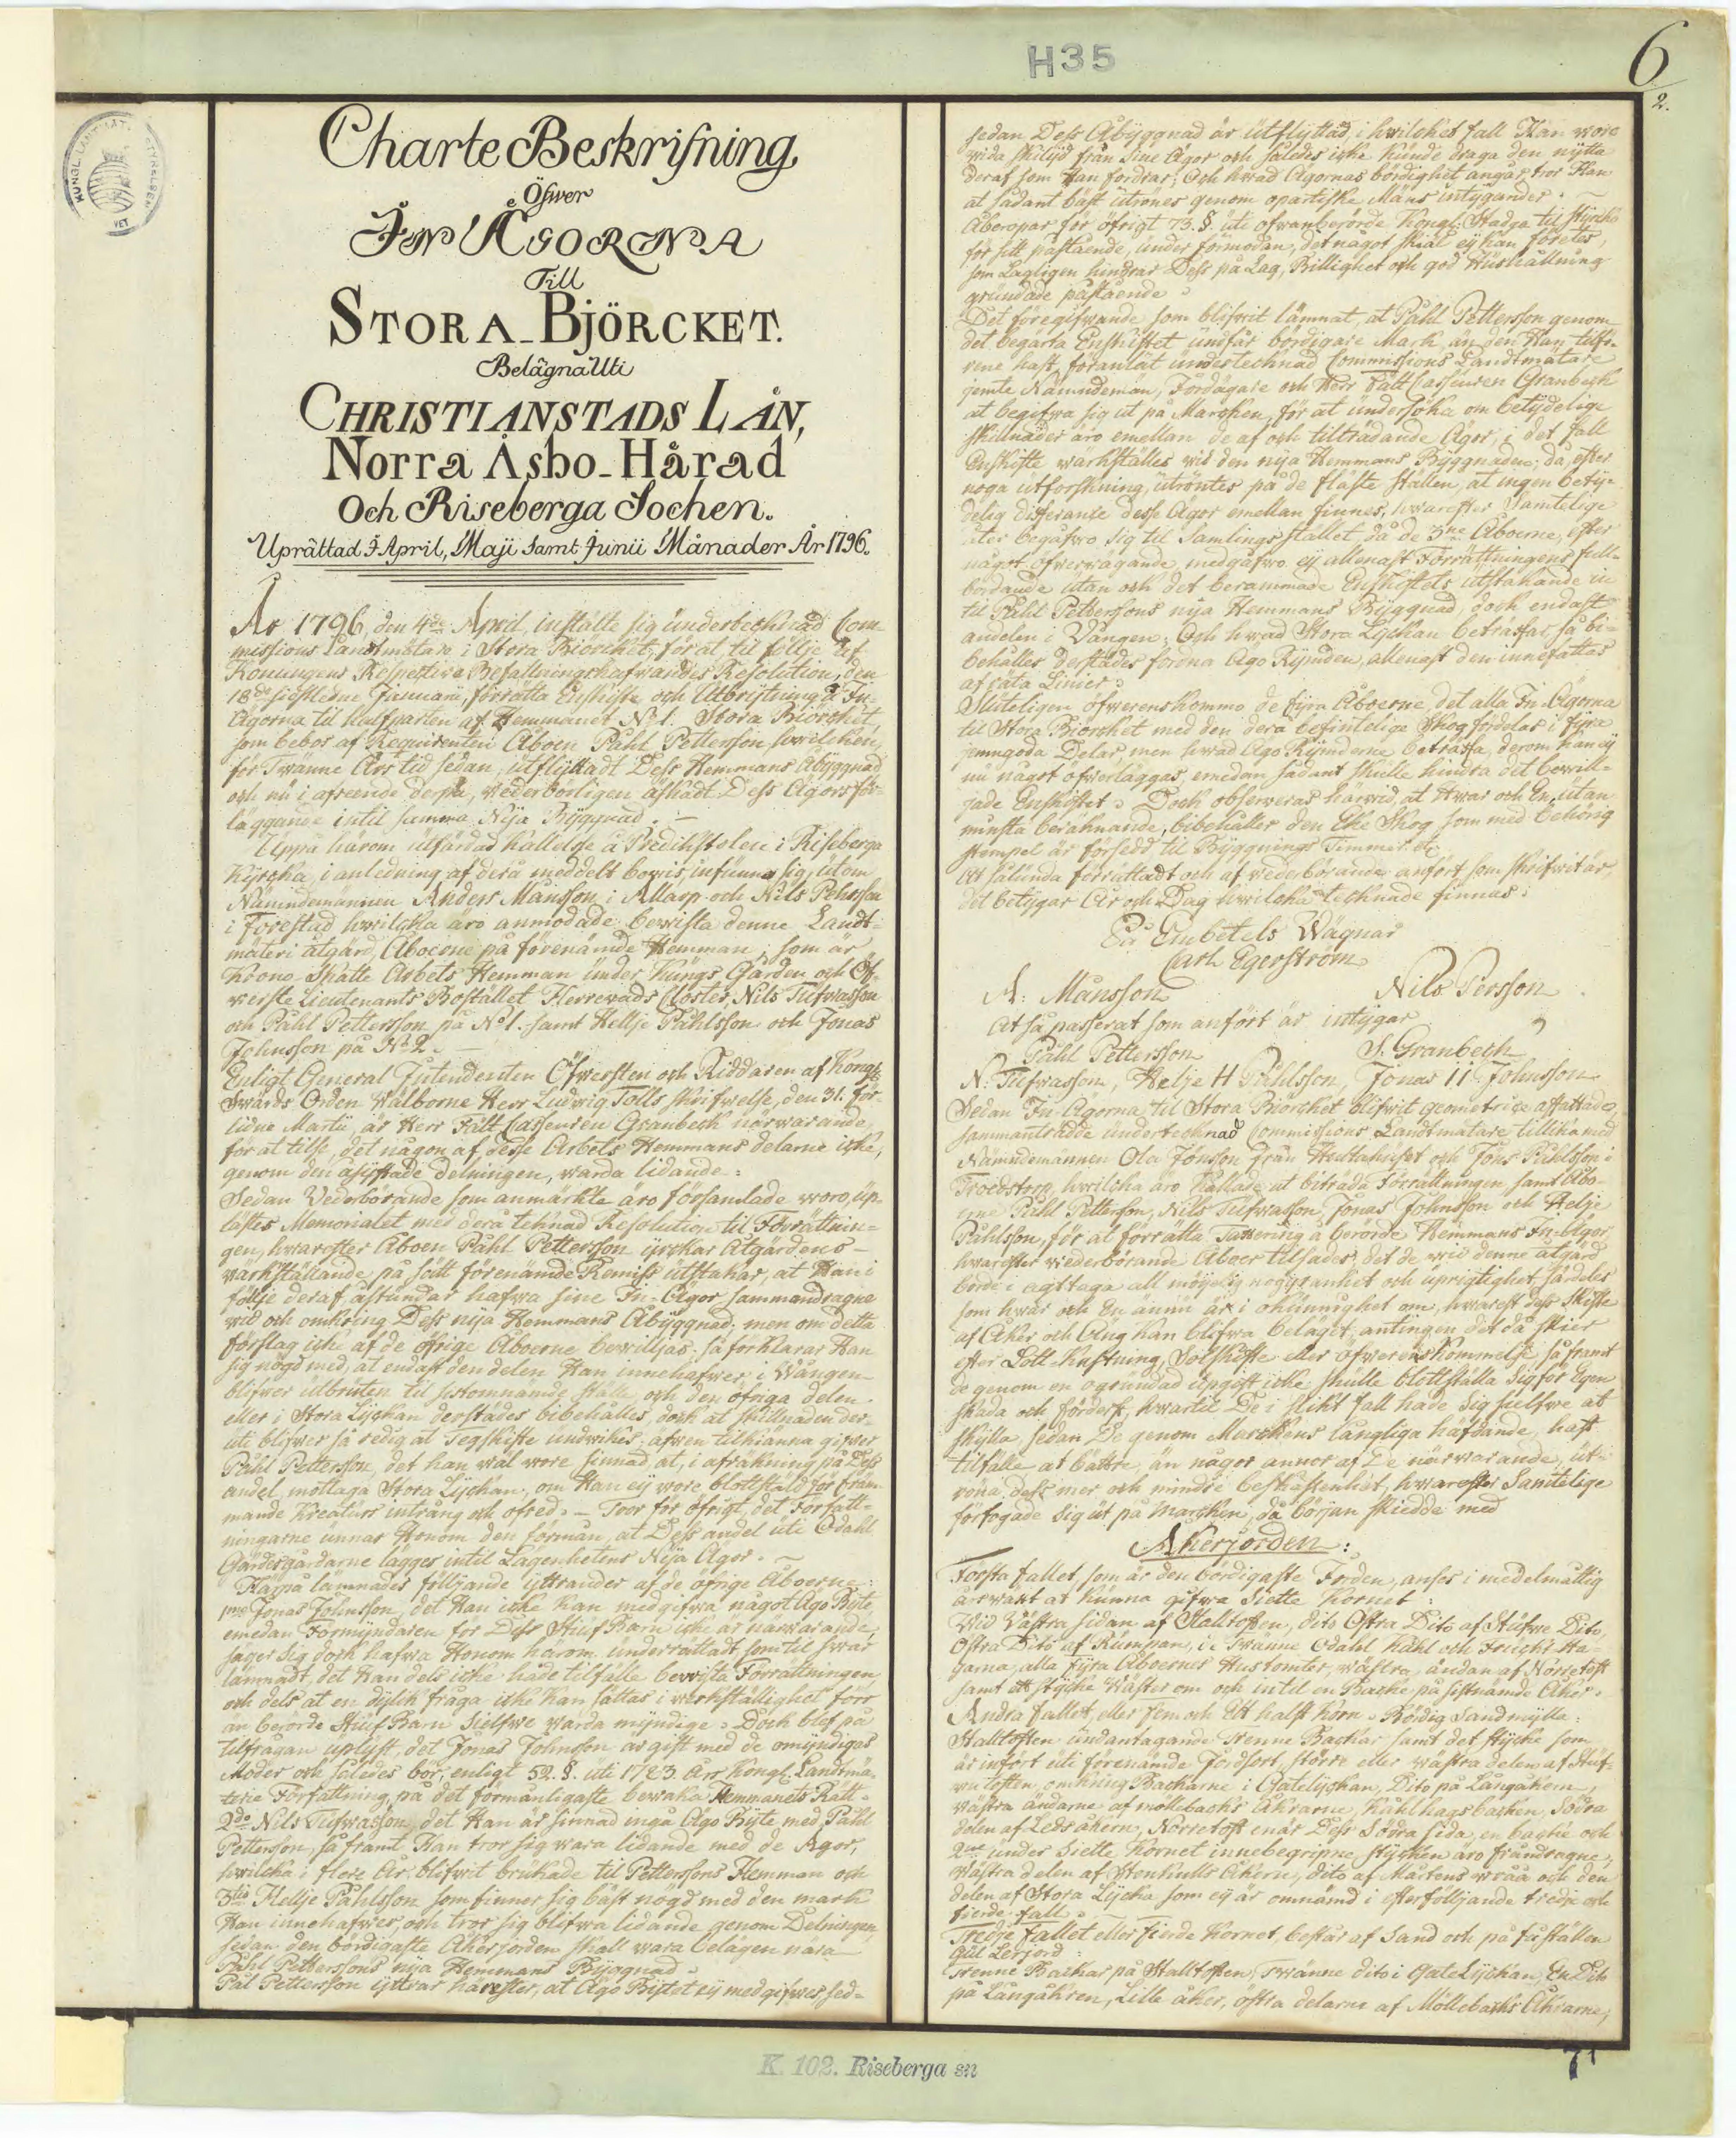 H35
6
2.
KUNGL. LANTMÄTERISTYRELSEN
Charte Beskrifning
Öfwer
IN ÄGORNA
Till
STORA BJÖRCKET.
Belägna Uti
CHRISTIANSTADS LÄN,
Norra Åsbo-Härad
Och Riseberga Sochen.
Uprättad I April, Maji samt Junii Månader År 1796.
År 1796, den 4de April, instälte sig underteknad Com-
missions Landtmätare i Stora Björcket, för at til följe af
Konungens Respective Befallningshafwandes Resolution, den
18de sidstledne Januarii, förrätta Enskifte och Utbrytning å In-
Ägorna til halfparten af Hemmanet No 1. Stora Biörcket,
som bebos af Requirenten Åboen Påhl Pettersson, hwilken,
för Twänne Års tid sedan, utflyttadt Dess Hemmans Åbyggnad
och nu i afseende derpå, wederbörligen äskadt Dess Ägors för-
läggande intil samma Nya Byggnad. —
Uppå härom utfärdad kallelse å Predikstolen i Riseberga
Kyrcka, i anledning af derå meddelt bewis, infunno sig, utom
Nämndemännen Anders Månsson i Allarp och Nils Pehrsson
i Forestad hwilcka äro anmodade bewista denne Landt-
mäteri åtgärd, Åboerne på förenämde Hemman, som är
Krono Skatte Arbets Hemman under Kungs Gården och Öf-
werste Lieutenants Bostället Herrewads Closter, Nils Tufwasson
och Påhl Pettersson på No 1. samt Hellje Påhlsson och Jonas
Johnsson på No 2. —
Enligt General Intendenten Öfwersten och Riddaren af Kongl.
Swärds Orden Wälborne Herr Ludwig Tolls skrifwelse, den 31. för-
lidne Martii, är Herr Fält Casseuren Granbeck närwarande,
för at tilse, det någon af desse Arbets Hemmans delarne icke,
genom den asyftade delningen, warda lidande:
Sedan Vederbörande som anmärkte äro församlade woro, up-
lästes Memorialet med derå teknad Resolution til Förrättnin-
gen, hwarefter Åboen Påhl Pettersson yrckar Åtgärdens
wärkställande på sätt förenämde Remiss utstakar, at Han i
följe deraf åstundar hafwa sine In-Ägor sammandragne
wid och omkring Dess nya Hemmans Åbyggnad: men om detta
förslag icke af de öfrige Åboerne bewilljas, så förklarar Han
sig nögd med, at endast den delen Han innehafwer i Wången
blifwer utbruten til sistomnämde ställe, och den öfriga delen
eller i Stora Lyckan derstädes bibehålles, dock at skillnaden der-
uti blifwer så redig at Tegskifte undwikes, äfwen tilkiänna gifwer
Påhl Pettersson, det han wäl wore sinnad, at, i afräkning på Dess
andel, mottaga Stora Lyckan, om Han ej wore blottstäld för främ-
mande Kreaturs intrång och ofred. — Tror för öfrigt, det Författ-
ningarne unnar Honom den förmån, at Dess andel uti Odahl
Gärdesgårdarne lägges intil Lägenhetens Nya Ägor. —
Härpå lämnades följjande yttrander af de öfrige Åboerne:
1mo Jonas Johnsson, det Han icke kan medgifwa något Ägo Byte,
emedan Förmyndaren för Dess Stiuf Barn icke är närwarande,
säger sig dock hafwa Honom härom underrättadt som til swar
lämnadt, det Han dels icke hade tilfälle bewista Förrättningen
och dels at en dylik fråga icke kan sättas i werkställighet förr
än berörde Stiuf Barn sielfwe warda myndige. Dock blef på
tilfrågan uplyst, det Jonas Johnsson är gift med de omyndigas
Moder och således bör, enligt 52. §. uti 1783 Års Kongl. Landtmä-
terie Författning, på det förmånligaste bewaka Hemmanets Rätt.
2do Nils Tufwasson, det Han är sinnad ingå Ägo Byte med Påhl
Pettersson, så framt Han tror sig wara lidande med de Ägor,
hwilcka i flere År blifwit brukade til Petterssons Hemman och
3tio Hellje Påhlsson som finner sig bäst nögd med den mark
Han innehafwer, och tror sig blifwa lidande genom Delningen
sedan den bördigaste Åkerjorden skall wara belägen nära
Påhl Petterssons nya Hemmans Byggnad.
Pål Pettersson yttrar härefter, at Ägo Bytet ej medgifwes sed-
sedan Dess Åbyggnad är utflyttad, i hwilket fall Han wore
wida skiljd från Sine Ägor och således icke kunde draga den nytta
deraf som Han fordrar; Och hwad Ägornas bördighet angår, tror Han
at sådant bäst utrönes genom opartiske Mäns intygander. —
Åberopar för öfrigt 73. §. uti ofwanberörde Kongl. Stadga til styrcko
för sitt påstående, under förmodan, det något skiäl ej kan företes,
som Lagligen hindrar Dess på Lag, Billighet och god Hushållning
grundade påstående.
Det föregifwande som blifwit lämnat, at Påhl Pettersson genom
det begärta Enskiftet undfår bördigare Mark än den Han tilfö-
rene haft, föranlät underteknad Commissions Landtmätare
jemte Nämndemän, Jordägare och Herr Fält Casseuren Granbeck
at begifwa sig ut på Marcken, för at undersöka om betydelige
skillnader äro emellan de af och tilträdande Ägor, i det fall
Enskifte wärkställes wid den nya Hemmans Byggnaden; då, efter
noga utforskning, utröntes på de fläste ställen, at ingen bety-
delig differance desse Ägor emellan finnes, hwarefter Samtelige
åter begåfwo sig til Samlingsstället, då de 3ne Åboerne, efter
något öfwerwägande, medgåfwo ej allenast Förrättningens full-
bordande utan och det berammade Enskiftets utstakande in
til Påhl Petterssons nya Hemmans Byggnad, dock endast
andelen i Vången; Och hwad Stora Lyckan beträffar, så bi-
behålles derstädes fordna Ägo Rymden, allenast den innefattas
af räta Linier.
Sluteligen öfwerenskommo de fyra Åboerne, det alla In-Ägorna
til Stora Biörcket med den derå befintelige Skog fördelas i fyra
jemngoda Delar, men hwad Ägo Rymderne beträffa, derom kan ej
nu något öfwerläggas, emedan sådant skulle hindra det bewill-
jade Enskiftet. Dock observeras härwid, at Hwar och En, utan
minsta beräknande, bibehåller den Eke Skog som med behörig
stempel är försedd til Byggnings Timmer etc.
At sålunda förrättadt och af wederbörande anfört, som skrifwet är,
det betygar År och Dag hwilcka teknade finnas.
På Embetets Wägnar
Carl Egerström
A: Månsson Nils Persson
At så passerat som anfört är intygar
Påhl Pettersson S. Granbeck
N. Tufwasson, Helje H Påhlsson, Jonas II Johnsson
Sedan In-Ägorna til Stora Biörcket blifwit geometrice affattade,
sammanträdde underteknad Commissions Landtmätare tillika med
Nämndemännen Ola Jönsson från Hultahuset och Jöns Påhlsson i
Troedstorp, hwilcka äro kallade at biträda Förrättningen samt Åbo-
erne Påhl Pettersson, Nils Tufwasson, Jonas Johnsson och Helje
Påhlsson, för at förrätta Taxering å berörde Hemmans In-Ägor,
hwarefter wederbörande Åboer tilsades, det de wid denne åtgärd
borde i agttaga all möjelig noggranhet och uprigtighet, särdeles
som hwar och En ännu är i okunnighet om, hwarest dess Skifte
af Åker och Äng kan blifwa belägit, antingen det då skier
efter Lott Kastning, Solskifte eller öfwerenskommelse, så framt
de genom en ogrundad upgift icke skulle blottställa sig för Egen
skada och förderf, hwartil De i slikt fall hade sig sielfwe at
skylla, sedan De genom Marckens långliga häfdande, haft
tilfälle at bättre, än någor annor af De närwarande, ut-
röna dess mer och mindre beskaffenhet, hwarefter Samtelige
förfogade sig ut på Marcken, då början skiedde med
Åkerjorden:
Första fallet, som är den bördigaste Jorden, anses i medelmåttig
årswäxt at kunna gifwa Siette kornet:
Wid Wästra sidan af Stalltoften, dito Östra Dito af Stufwe Dito,
Östra Dito af Kumpan, i Twänne Odahl kåhl och Frucht Ha-
garna, alla fyra Åboernes Hustomter, wästra ändan af Norretoft
samt ett stycke Wäster om och intil en Backe på sistnämde Åker.
Andra fallet, eller Fem och Ett halft Korn. Bördig Sandmylla:
Stalltoften undantagande Trenne Backar samt det stycke som
är infört uti förenämde Jordsort, större eller wästra delen af Stuf-
wutoften, omkring Backarne i Gatelyckan, Dito på Långåkern,
Wästra ändarne af möllebacks Åkrarne, Kåhlhagsbacken, Södra
delen af Ledsåkern, Norretoft enär Dess Södra sida, en backe och
2ne under Siette Kornet innebegripne stycken äro fråndragne,
Wästra delen af Stenkulls Åkern, dito af Mårtens wråå och den
delen af Stora Lycka som ej är omnämd i efterfölljande tredje och
fierde fall.
Tredje fallet eller fierde Kornet, består af Sand och på få ställen
Gul Lerjord:
Trenne Backar på Stalltoften, Twänne dito i GateLyckan, En Dito
på Långåkren, Lille åker, östra delarne af Möllebacks Åkrarne;
K 102. Riseberga sn
71